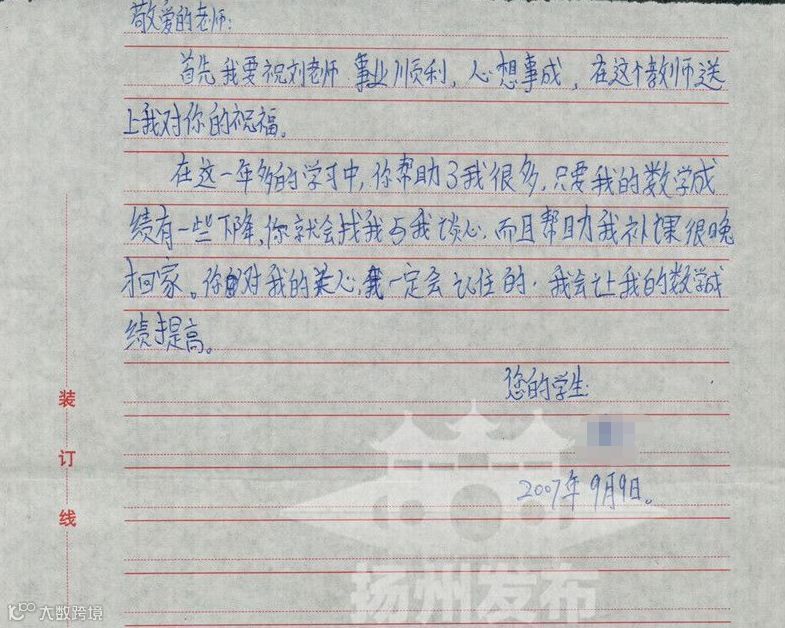 敬爱的老师:
首先我要祝刘老师 事业顺利，心想事成，在这个教师送
上我对你的祝福。
在这一年多的学习中，你帮助了我很多，只要我的数学成
绩有一些下降，你就会找我与我谈心，而且帮助我补课很晚
才回家。你对我的关心，我一定会记住的，我会让我的数学成
绩提高。
您的学生:
2007年9月9日。
装
订
线
扬州发布
大数跨境